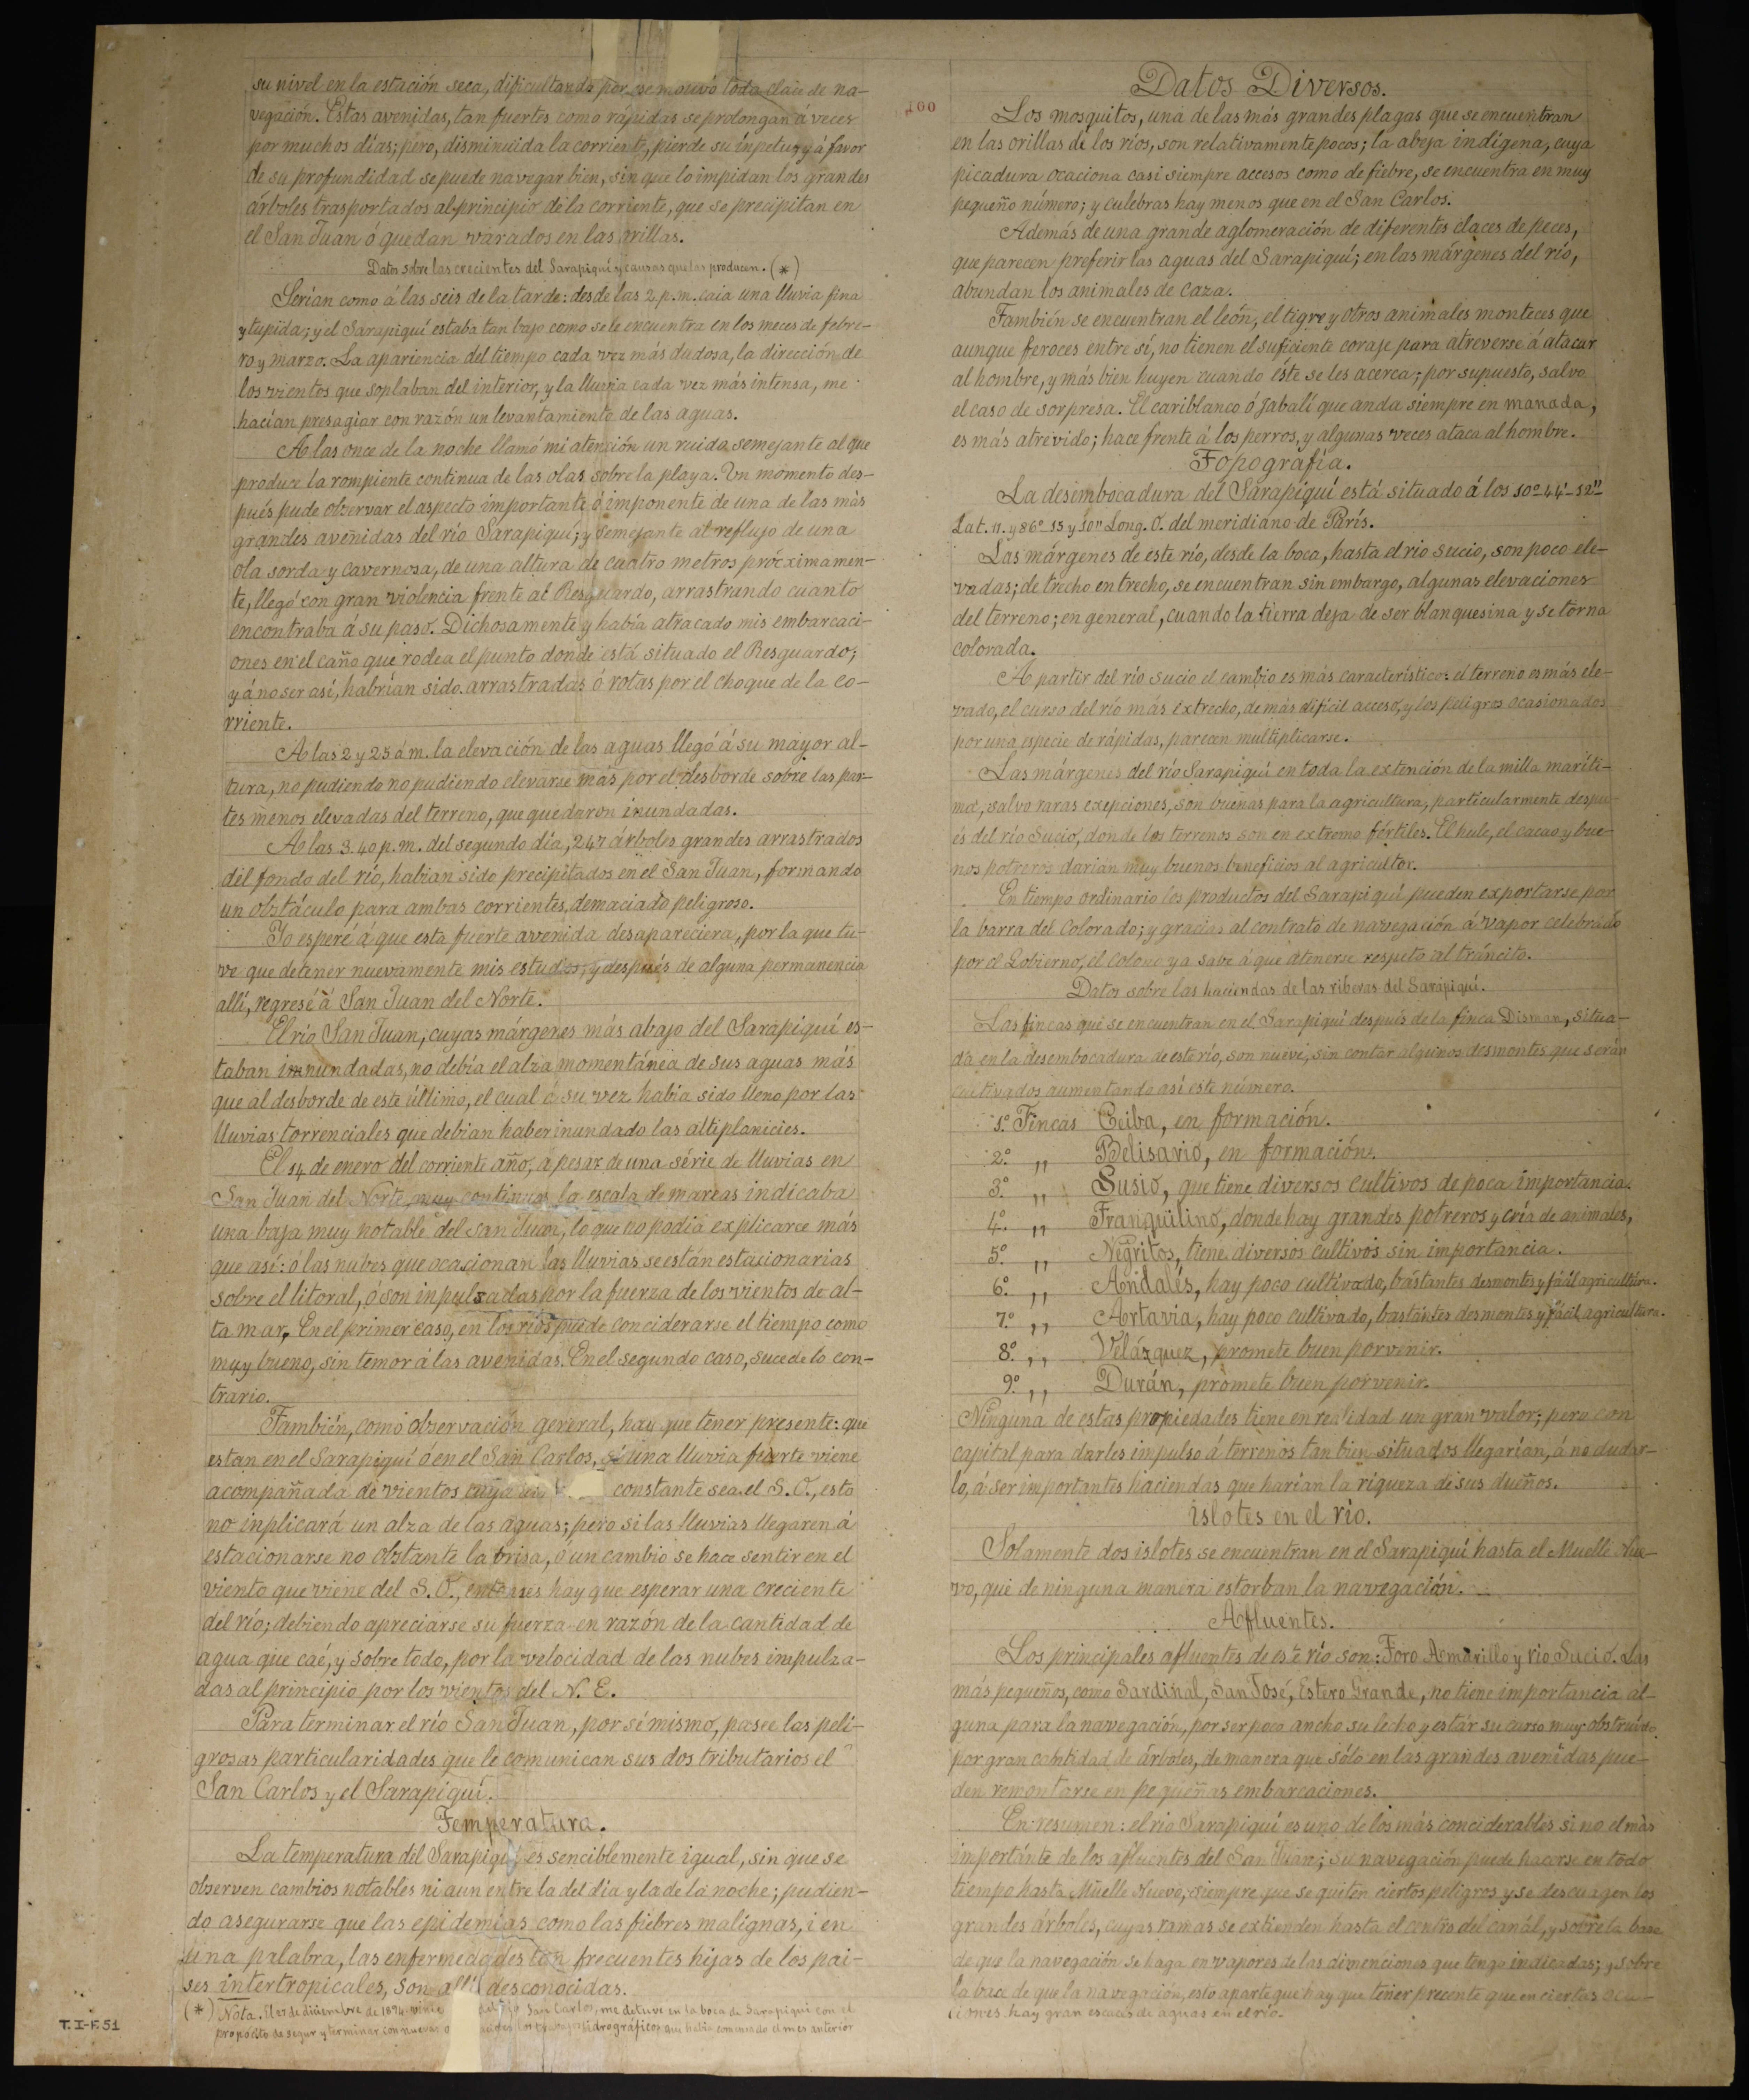 su nivel en la estación seca, dificultando por ese motivo toda clase de na-
vegación. Estas avenidas, tan fuertes como rápidas se prolongan á veces
por muchos días; pero, disminuida la corriente, pierde su ímpetu, y á favor
de su profundidad se puede navegar bien, sin que lo impidan los grandes
árboles trasportados al principio de la corriente, que se precipitan en
el San Juan ó quedan varados en las orillas.
Datos sobre las crecientes del Sarapiquí y causas que las producen. (*)
Serían como á las seis de la tarde: desde las 2 p.m. caía una lluvia fina
y tupida; y el Sarapiquí estaba tan bajo como se le encuentra en los meces de febre-
ro y marzo. La apariencia del tiempo cada vez más dudosa, la dirección de
los vientos que soplaban del interior, y la lluvia cada vez más intensa, me
hacían presagiar con razón un levantamiento de las aguas.
A las once de la noche llamó mi atención un ruido semejante al que
produce la rompiente continua de las olas sobre la playa. Un momento des-
pués pude observar el aspecto importante é imponente de una de las más
grandes avenidas del río Sarapiquí; y semejante al reflujo de una
ola sorda y cavernosa, de una altura de cuatro metros próximamen-
te, llegó con gran violencia frente al Resguardo, arrastrando cuanto
encontraba á su paso. Dichosamente y había atracado mis embarcaci-
ones en el caño que rodea el punto donde está situado el Resguardo;
y á no ser así, habrían sido arrastradas ó rotas por el choque de la co-
rriente.
A las 2 y 25 á m. la elevación de las aguas llegó á su mayor al-
tura, no pudiendo no pudiendo elevarse más por el desborde sobre las par-
tes menos elevadas del terreno, que quedaron inundadas.
A las 3.40 p.m. del segundo día, 247 árboles grandes arrastrados
del fondo del río, habían sido precipitados en el San Juan, formando
un obstáculo para ambas corrientes, demaciado peligroso.
Yo esperé á que esta fuerte avenida desapareciera, por la que tu-
ve que detener nuevamente mis estudios; y después de alguna permanencia
allí, regresé á San Juan del Norte.
El río San Juan, cuyas márgenes más abajo del Sarapiquí es-
taban innundadas, no debía el alza momentánea de sus aguas más
que al desborde de este último, el cual á su vez había sido lleno por las
lluvias torrenciales que debían haber inundado las altiplanicies.
El 14 de enero del corriente año, a pesar de una série de lluvias en
San Juan del Norte, muy continuas la escala de mareas indicaba
una baja muy notable del San Juan, lo que no podía explicarce más
que así: ó las nubes que ocacionan las lluvias se están estacionarias
sobre el litoral, ó son inpulsadas por la fuerza de los vientos de al-
ta mar. En el primer caso, en los ríos puede conciderarse el tiempo como
muy bueno, sin temor á las avenidas. En el segundo caso, sucede lo con-
trario.
También, como observación general, hay que tener presente: que
estan en el Sarapiquí ó en el San Carlos, si una lluvia fuerte viene
acompañada de vientos cuya constante sea el S.O., esto
no inplicará un alza de las aguas; pero si las lluvias llegaren á
estacionarse no obstante la brisa, ó un cambio se hace sentir en el
viento que viene del S.O., entonses hay que esperar una creciente
del río; debiendo apreciarse su fuerza en razón de la cantidad de
agua que cáe, y sobre todo, por la velocidad de las nubes impulza-
das al principio por los vientos del N.E.
Para terminar el río San Juan, por sí mismo, pasee las peli-
grosas particularidades que le comunican sus dos tributarios el
San Carlos y el Sarapiquí.
Temperatura.
La temperatura del Sarapiquí, es senciblemente igual, sin que se
observen cambios notables ni aun entre la del día y la de la noche; pudien-
do asegurarse que las epidemias como las fiebres malignas, i en
una palabra, las enfermedades tan frecuentes hijas de los paí-
ses intertropicales, son allí desconocidas.
(*) Nota. El 27 de diciembre de 1894 del río San Carlos, me detuve en la boca de Sarapiquí con el
propósito de segur y terminar con nuevas los trabajos hidrográficos que había comensado el mes anterior
T.I-F.51
100
Datos Diversos.
Los mosquitos, una de las más grandes plagas que se encuentran
en las orillas de los ríos, son relativamente pocos; la abeja indígena, cuya
picadura ocaciona casi siempre accesos como de fiebre, se encuentra en muy
pequeño número; y culebras hay menos que en el San Carlos.
Además de una grande aglomeración de diferentes claces de peces,
que parecen preferir las aguas del Sarapiquí; en las márgenes del río,
abundan los animales de caza.
También se encuentran el león, el tigre y otros animales monteces que
aunque feroces entre sí, no tienen el suficiente coraje para atreverse á atacar
al hombre, y más bien huyen cuando éste se les acerca; por supuesto, salvo
el caso de sorpresa. El cariblanco ó jabalí que anda siempre en manada,
es más atrevido; hace frente á los perros, y algunas veces ataca al hombre.
Topografía.
La desimbocadura del Sarapiquí está situado á los 10º 44' 52"
Lat. N. y 86º 15 y 10" Long. O. del meridiano de París.
Las márgenes de este río, desde la boca, hasta el rio sucio, son poco ele-
vadas; de trecho en trecho, se encuentran sin embargo, algunas elevaciones
del terreno; en general, cuando la tierra deja de ser blanquesina y se torna
colorada.
A partir del río sucio el cambio es más característico: el terreno es más ele-
vado, el curso del río más extrecho, de más difícil acceso, y los peligros ocasionados
por una especie de rápidas, parecen multiplicarse.
Las márgenes del río Sarapiquí en toda la extención de la milla maríti-
ma, salvo raras exepciones, son buenas para la agricultura, particularmente despu-
és del río Sucio, donde los terrenos son en extremo fértiles. El hule, el cacao y bue-
nos potreros darían muy buenos beneficios al agricultor.
En tiempo ordinario los productos del Sarapiquí pueden exportarse por
la barra del Colorado; y gracias al contrato de navegación á vapor celebrado
por el Gobierno, el colono ya sabe á que atenerse respeto al tráncito.
Datos sobre las haciendas de las riberas del Sarapiquí.
Las fincas que se encuentran en el Sarapiquí después de la finca Disman, situa-
da en la desembocadura de este río, son nueve, sin contar algunos desmontes que serán
cultivados aumentando así este número.
1.º Fincas Ceiba, en formación.
2.º ,, Belisario, en formación.
3.º ,, Susio, que tiene diversos cultivos de poca importancia.
4.º ,, Tranquilino, donde hay grandes potreros y cría de animales,
5.º ,, Negritos, tiene diversos cultivos sin importancia.
6.º ,, Andalés, hay poco cultivado, bastantes desmontes y fácil agricultura.
7.º ,, Artavia, hay poco cultivado, bastantes desmontes y fácil agricultura.
8.º ,, Velázquez, promete buen porvenir.
9.º ,, Durán, promete buen porvenir.
Ninguna de estas propiedades tiene en realidad un gran valor; pero con
capital para darles impulso á terrenos tan bien situados llegarían, á no dudar-
lo, á ser importantes haciendas que harían la riqueza de sus dueños.
islotes en el río.
Solamente dos islotes se encuentran en el Sarapiquí hasta el Muelle Nue-
vo, que de ninguna manera estorban la navegación.
Afluentes.
Los principales afluentes de este río son: Toro Amarillo y rio Sucio. Los
más pequeños, como Sardinal, San José, Estero Grande, no tiene importancia al-
guna para la navegación, por ser poco ancho su lecho y estár su curso muy obstruido
por gran cantidad de árboles, de manera que sólo en las grandes avenidas pue-
den remontarse en pequeñas embarcaciones.
En resumen: el río Sarapiquí es uno de los más conciderables si no el más
importánte de los afluentes del San Juan; su navegación puede hacerse en todo
tiempo hasta Muelle Nuevo, siempre que se quiten ciertos peligros y se descuagen los
grandes árboles, cuyas ramas se extienden hasta el centro del canál, y sobre la base
de que la navegación se haga en vapores de las dimenciones que tengo indicadas; y sobre
la base de que la navegación, esto aparte que hay que tener precente que en ciertas
ciones hay gran escacés de aguas en el río.